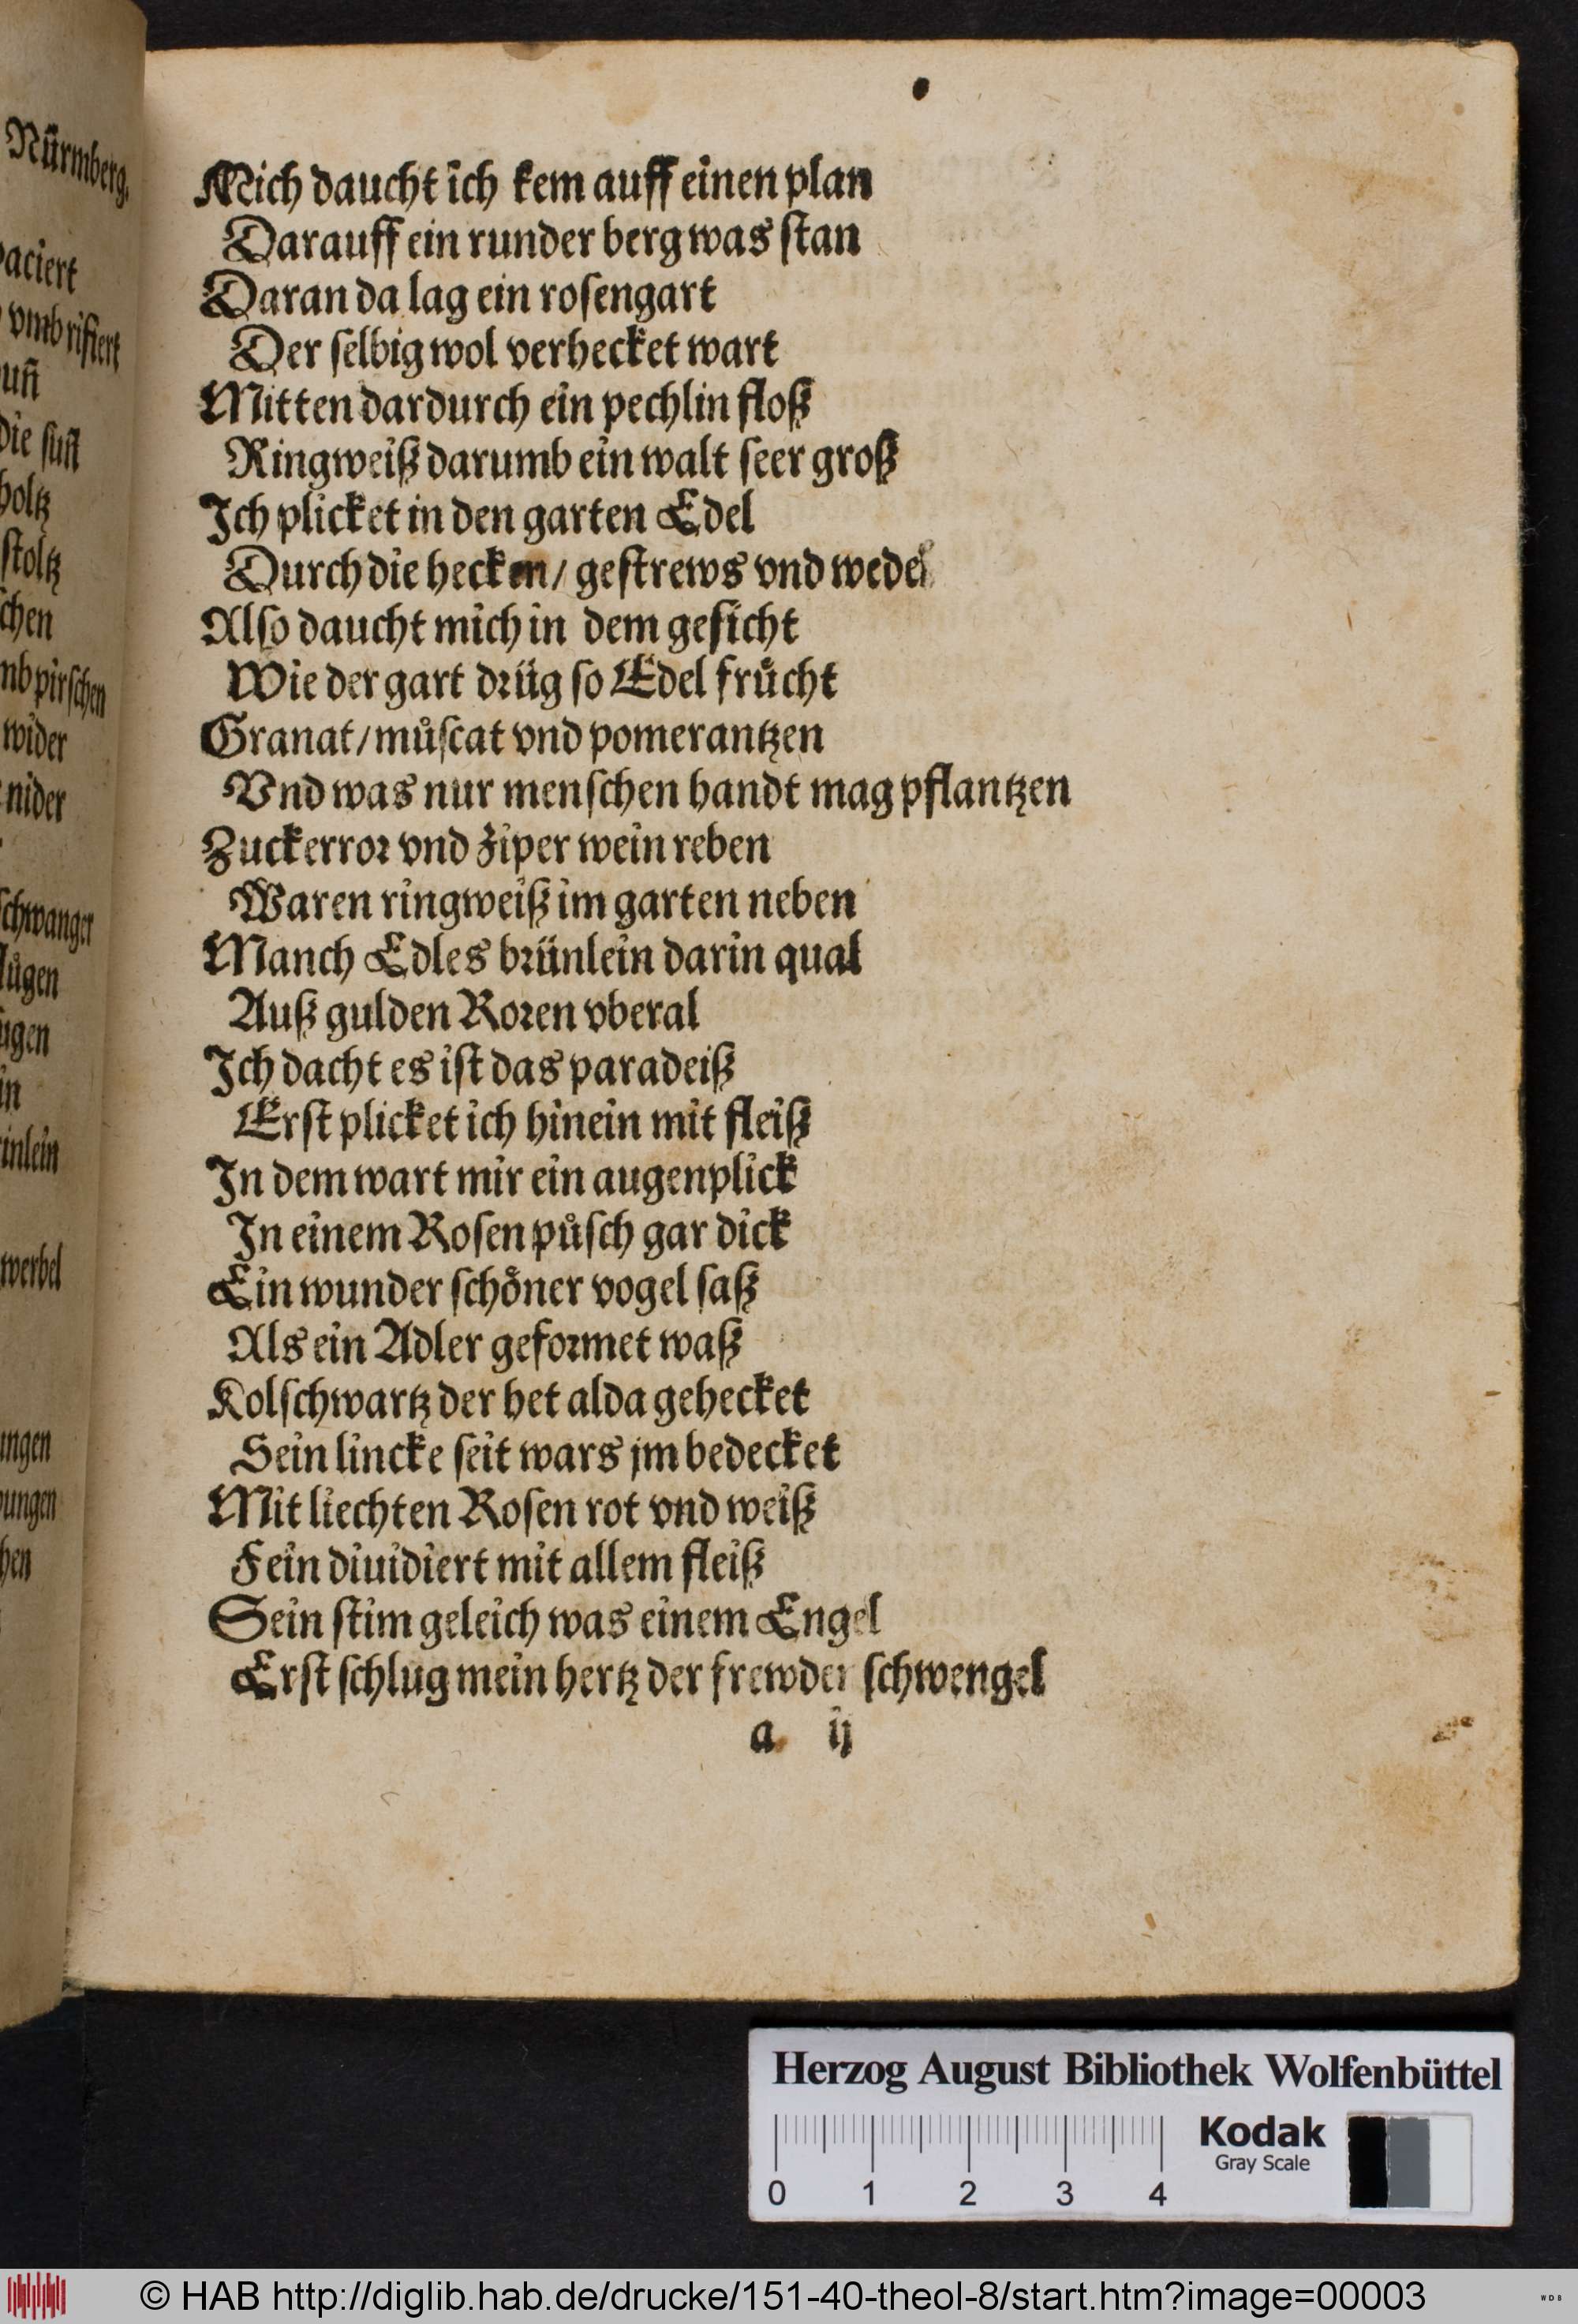 Nürmberg.
vmbrifiert
die suñ
holtz
stoltz
wider
nider
schwanger
werbel
Mich daucht ich kem auff einen plan
Darauff ein runder berg was stan
Daran da lag ein rosengart
Der selbig wol verhecket wart
Mitten dardurch ein pechlin floß
Ringweiß darumb ein walt seer groß
Ich plicket in den garten Edel
Durch die hecken / gestrews vnd wedel
Also daucht mich in dem gesicht
Wie der gart drüg so Edel frůcht
Granat / můscat vnd pomerantzen
Vnd was nur menschen handt mag pflantzen
Zuckerror vnd ziper wein reben
Waren ringweiß im garten neben
Manch Edles brünlein darin qual
Auß gulden Roren vberal
Ich dacht es ist das paradeiß
Erst plicket ich hinein mit fleiß
In dem wart mir ein augenplick
In einem Rosen půsch gar dick
Ein wunder schoͤner vogel saß
Als ein Adler geformet waß
Kolschwartz der het alda gehecket
Sein lincke seit wars jm bedecket
Mit liechten Rosen rot vnd weiß
Fein diuidiert mit allem fleiß
Sein stim geleich was einem Engel
Erst schlug mein hertz der frewden schwengel
a ij
Herzog August Bibliothek Wolfenbüttel
Kodak
Gray Scale
0 1 2 3 4
© HAB http://diglib.hab.de/drucke/151-40-theol-8/start.htm?image=00003
WDB